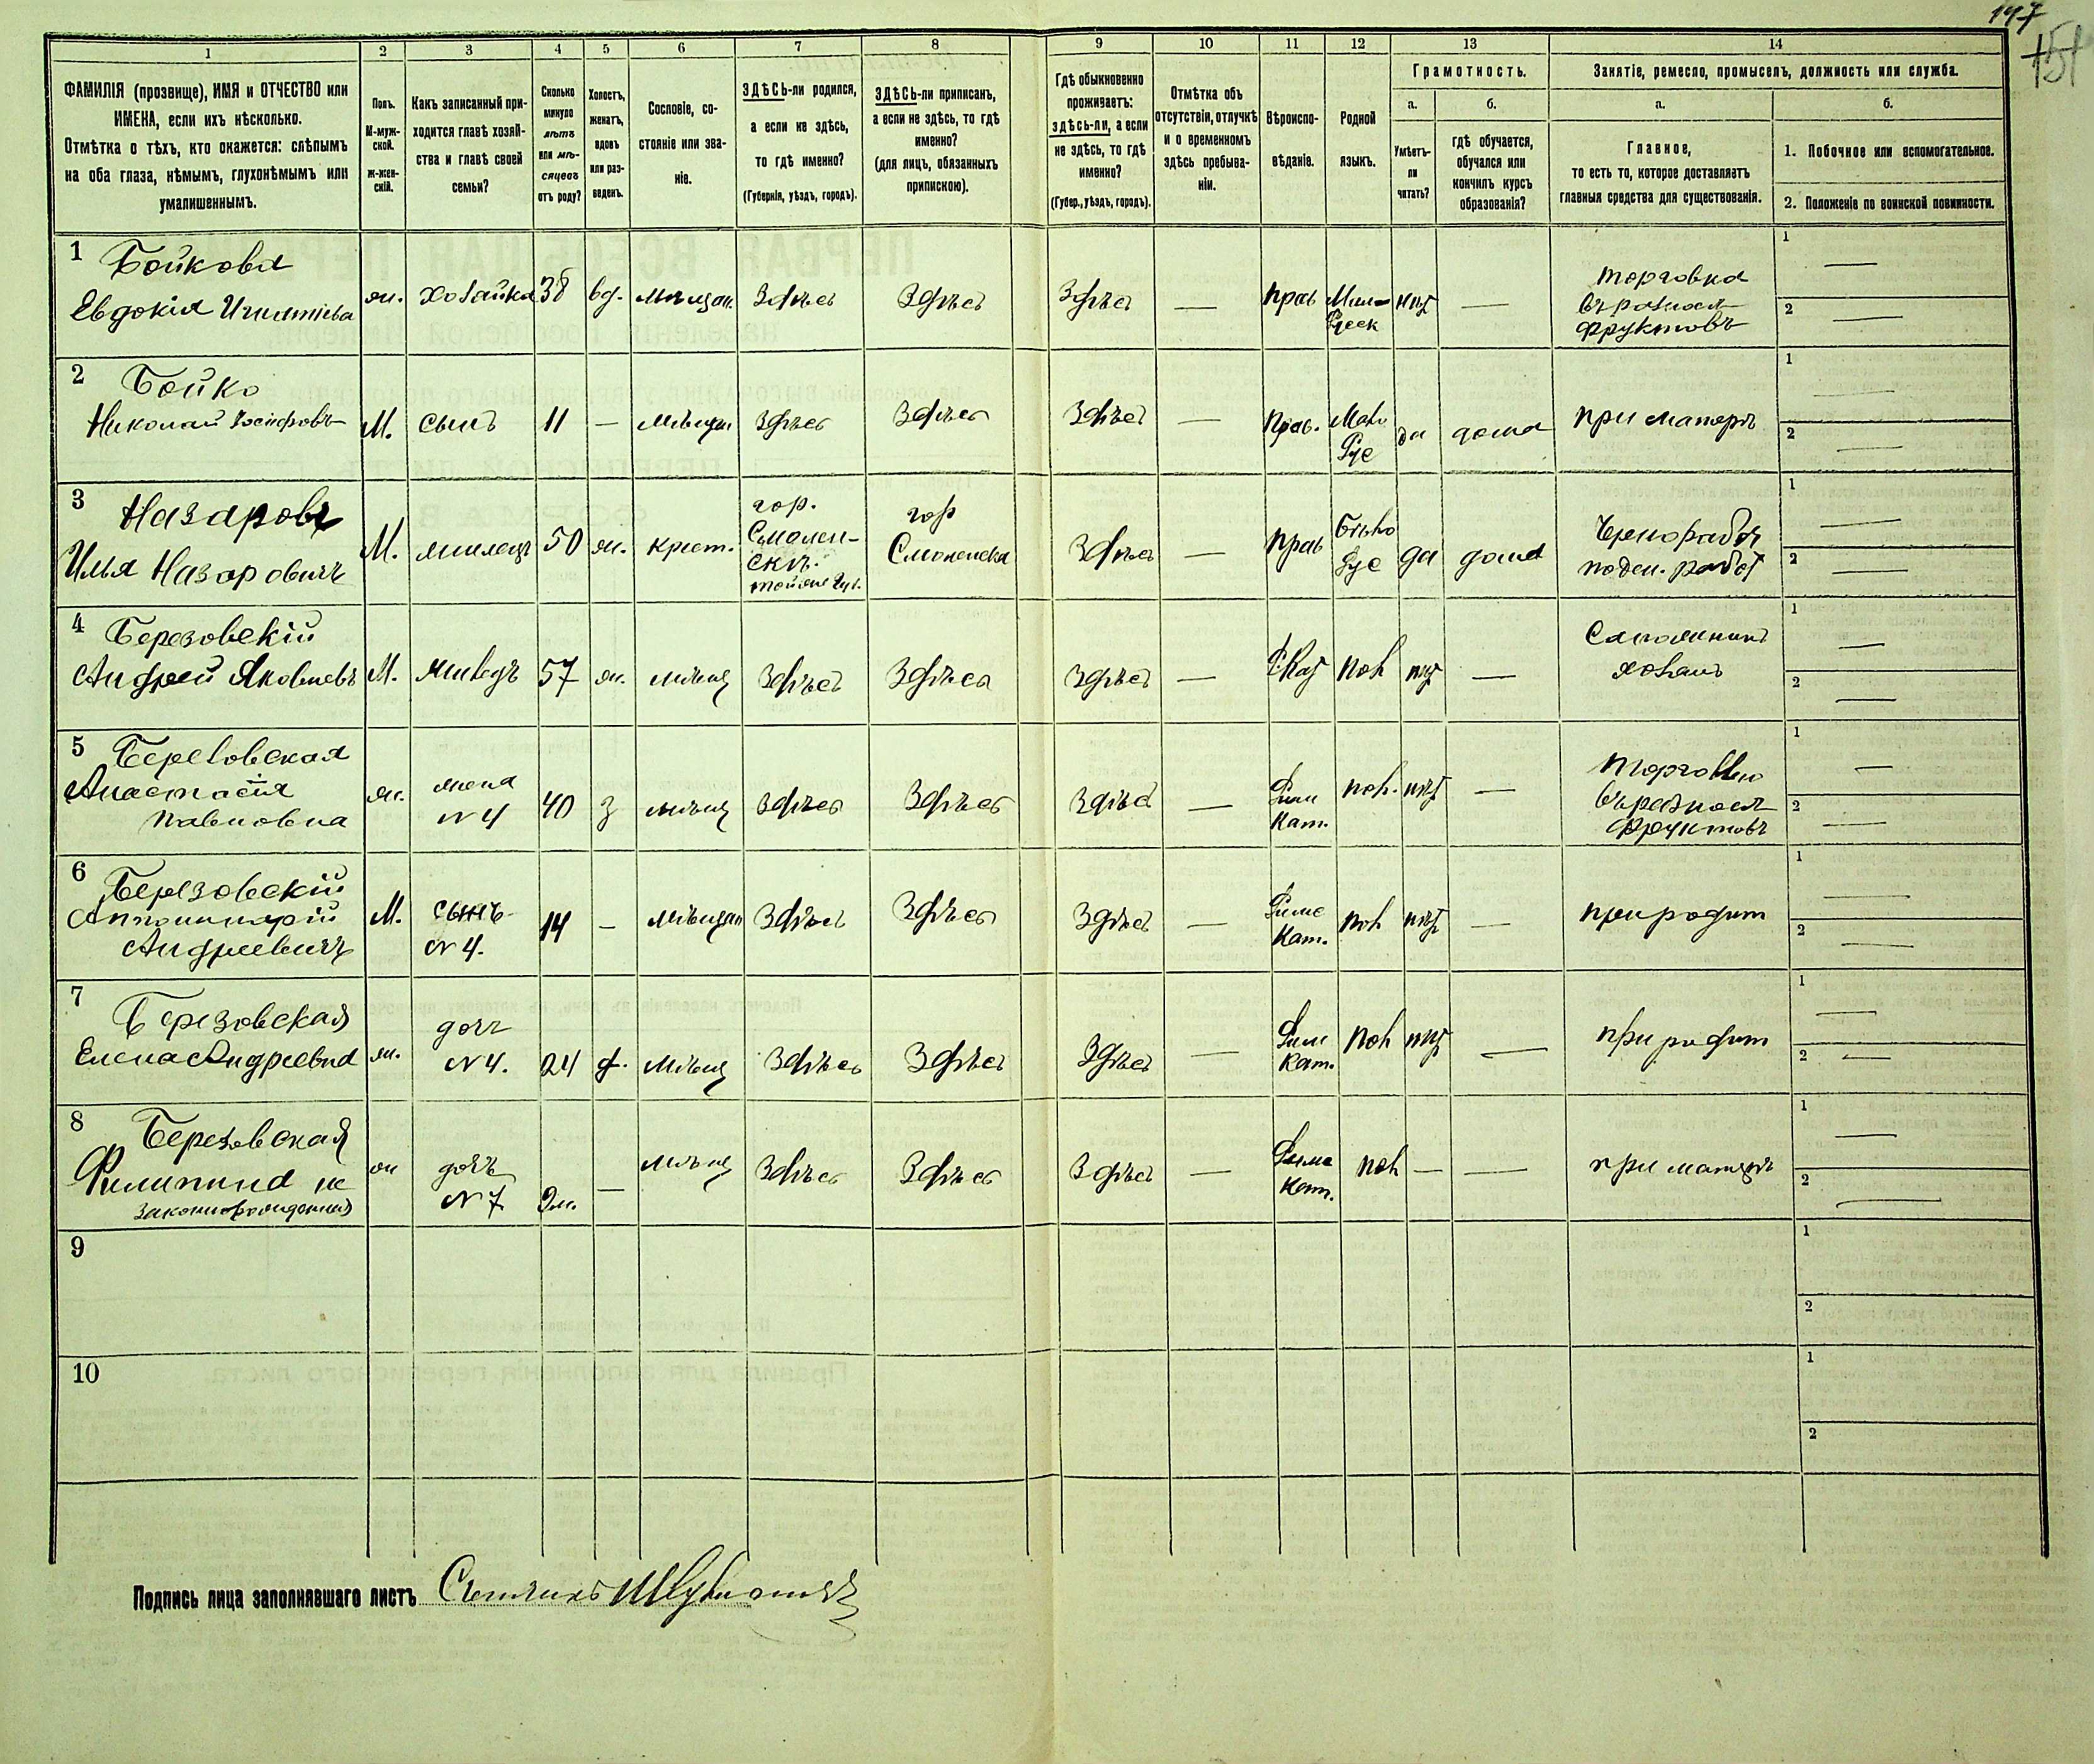 147
151
1 2 3 4 5 6 7 8 9 10 11 12 13 14
ФАМИЛІЯ (прозвище), ИМЯ и ОТЧЕСТВО или
ИМЕНА, если ихъ нѣсколько.
Отмѣтка о тѣхъ, кто окажется: слѣпымъ
на оба глаза, нѣмымъ, глухонѣмымъ или
умалишеннымъ.
Полъ.
М-муж-
ской.
Ж-жен-
скій.
Какъ записанный при-
ходится главѣ хозяй-
ства и главѣ своей
семьи?
Сколько
минуло
лѣтъ
или мѣ-
сяцевъ
отъ роду?
Холостъ,
женатъ,
вдовъ
или раз-
веденъ.
Сословіе, со-
стояніе или зва-
ніе.
ЗДѢСЬ-ли родился,
а если не здѣсь,
то гдѣ именно?
(Губернія, уѣздъ, городъ).
ЗДѢСЬ-ли приписанъ,
а если не здѣсь, то гдѣ
именно?
(для лицъ, обязанныхъ
припискою).
Гдѣ обыкновенно
проживаетъ:
здѣсь-ли, а если
не здѣсь, то гдѣ
именно?
(Губер., уѣздъ, городъ).
Отмѣтка объ
отсутствіи, отлучкѣ
и о временномъ
здѣсь пребыва-
ніи.
Вѣроиспо-
вѣданіе.
Родной
языкъ.
Грамотность.
а.
Умѣетъ-
ли
читать?
б.
гдѣ обучается,
обучался или
кончилъ курсъ
образованія?
Занятіе, ремесло, промыселъ, должность или служба.
а.
Главное,
то есть то, которое доставляетъ
главныя средства для существованія.
б.
1. Побочное или вспомогательное.
2. Положеніе по воинской повинности.
1 Бойкова
Евдокія Игнатіева
ж. хозайка 38 вд. мѣщан. Здѣсь Здѣсь Здѣсь — прав нѣт —
торговка
въ разнос
фруктовъ
1 —
2 —
2 Бойко
Николай Іосифовъ
М. сынъ 11 — мѣщан Здѣсь Здѣсь Здѣсь — Прав. Мало
Рус
да дома при матерѣ
1 —
2 —
3 Назаровъ
Илья Назаровичъ
М. жилецъ 50 ж. крест.
гор.
Смолен-
скъ.
тойже губ.
гор
Смоленска
Здѣсь — прав
Бѣло
Рус
да дома
Чернораб
поден. работ
1 —
2 —
4 Березовскій
Андрей Яковлевъ
М. жилецъ 57 ж. мѣщ Здѣсь Здѣсь Здѣсь — пол нѣт —
Сапожникъ
хозаинъ
1 —
2 —
5 Березовская
Анастасія
Павловна
ж.
жена
N 4
40 з мѣщ Здѣсь Здѣсь Здѣсь —
Рим
Кат.
пол. нѣт —
Торговлю
въ разнос
фруктовъ
1 —
2 —
6 Березовскій
Апполинарій
Андреевичъ
М.
сынъ
N 4.
14 — мѣщан Здѣсь Здѣсь Здѣсь —
Римс
Кат.
пол нѣт — при родит
1 —
2 —
7 Березовская
Елена Андреевна
ж.
доч
N 4.
24 д. мѣщ Здѣсь Здѣсь Здѣсь —
Рим
Кат.
пол нѣт — при родит
1 —
2 —
8 Березовская
Филипина не
законнорожденная
ж
дочъ
N 7
9 м. — мѣщ Здѣсь Здѣсь Здѣсь —
Римс
Кат.
пол — — при матерѣ
1 —
2 —
9
1
2
10
1
2
Подпись лица заполнявшаго листъ Счетчикъ